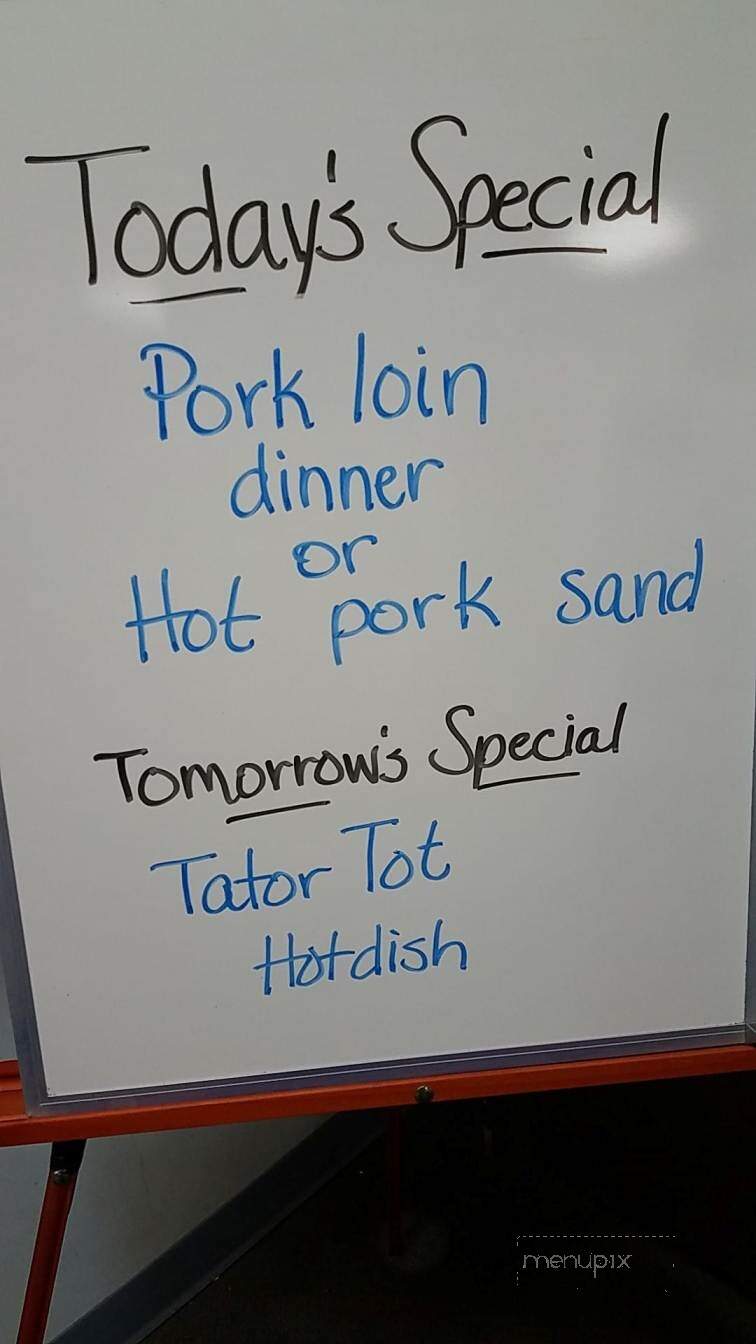 Today's Special
Pork loin
dinner
or
Hot pork sand
Tomorrow's Special
Tator Tot
Hotdish
menupix